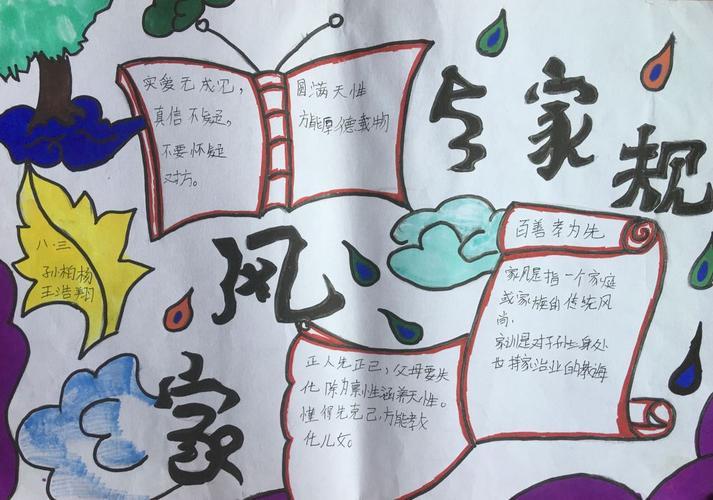 家风与家规
实爱无成见，
真信不疑，
不要怀疑
对方。
圆满天性
方能厚德载物
八.三
孙柏杨
王浩翔
百善孝为先
家风是指一个家庭
或家族的传统风
尚。
家训是对子孙立身处
世持家治业的教诲
正人先正己，父母要先
化除禀性涵养天性。
懂得先克己，方能教
化儿女。